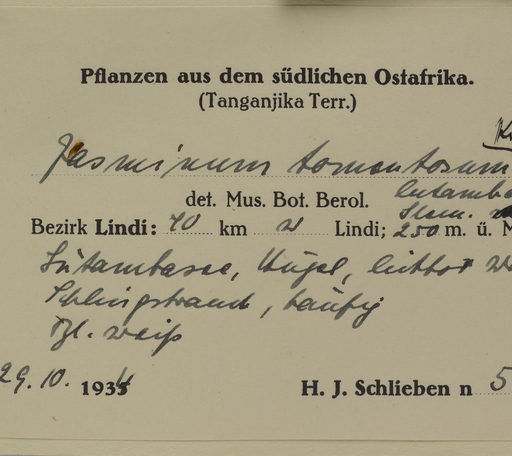 Pflanzen aus dem südlichen Ostafrika.
(Tanganjika Terr.)
Jasminum tomentosum
det. Mus. Bot. Berol. Lutamba
Bezirk Lindi: 40 km w Lindi; 250 m. ü. M
Lutambasee, Hügel, lichter
Schlingstrauch, häufig
Bl. weiß
29. 10. 1934 H. J. Schlieben n 5